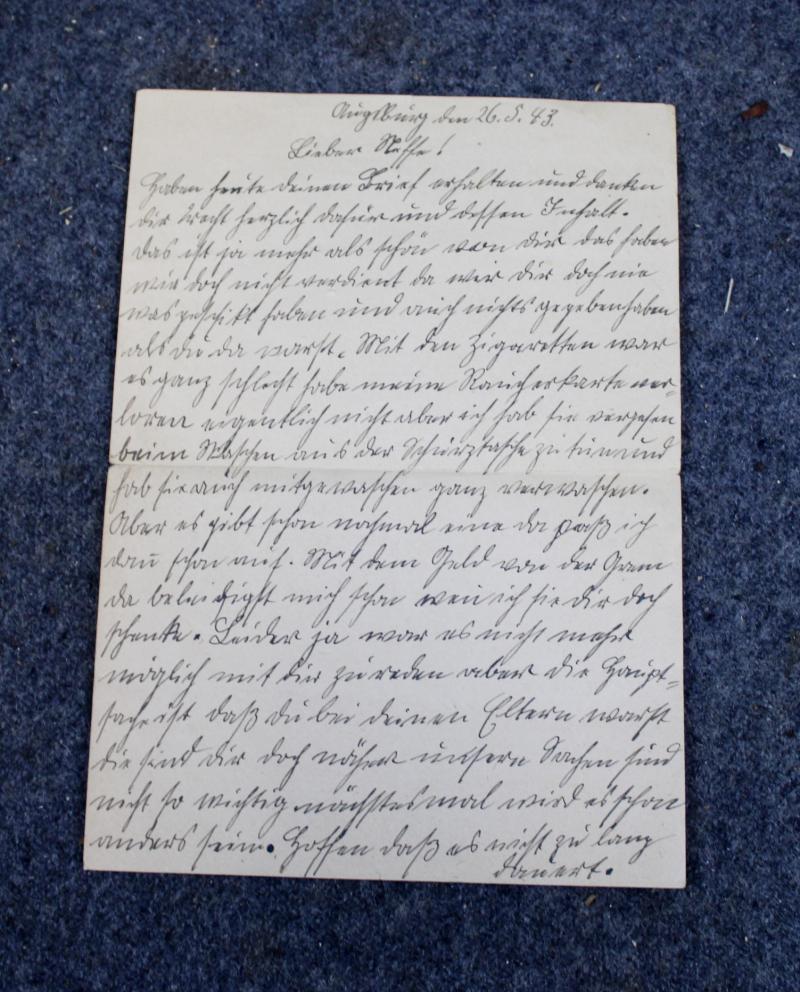 Augsburg den 26.5.43.
Lieber Neffe!
Haben heute deinen Brief erhalten und danken
dir recht herzlich dafür und dessen Inhalt.
Das ist ja mehr als schön von dir das haben
wir doch nicht verdient da wir dir doch nie
was geschikt haben und auch nichts gegeben haben
als du da warst. Mit den Zigaretten war
es ganz schlecht habe meine Raucherkarte ver-
loren eigentlich nicht aber ich hab sie vergessen
beim Waschen aus der Schürztasche zu tun und
hab sie auch mitgewaschen ganz verwaschen.
Aber es gibt schon nochmal eine da paß ich
dann schon auf. Mit dem Geld von der
da beleidigst mich schon wen ich sie dir doch
schenke. Leider ja war es nicht mehr
möglich mit dir zu reden aber die Haupt-
sache ist daß du bei deinen Eltern warst
die sind dir doch näher unsern Sachen sind
nicht so wichtig nächstesmal wird es schon
anders sein. Hoffen daß es nicht zu lang
dauert.